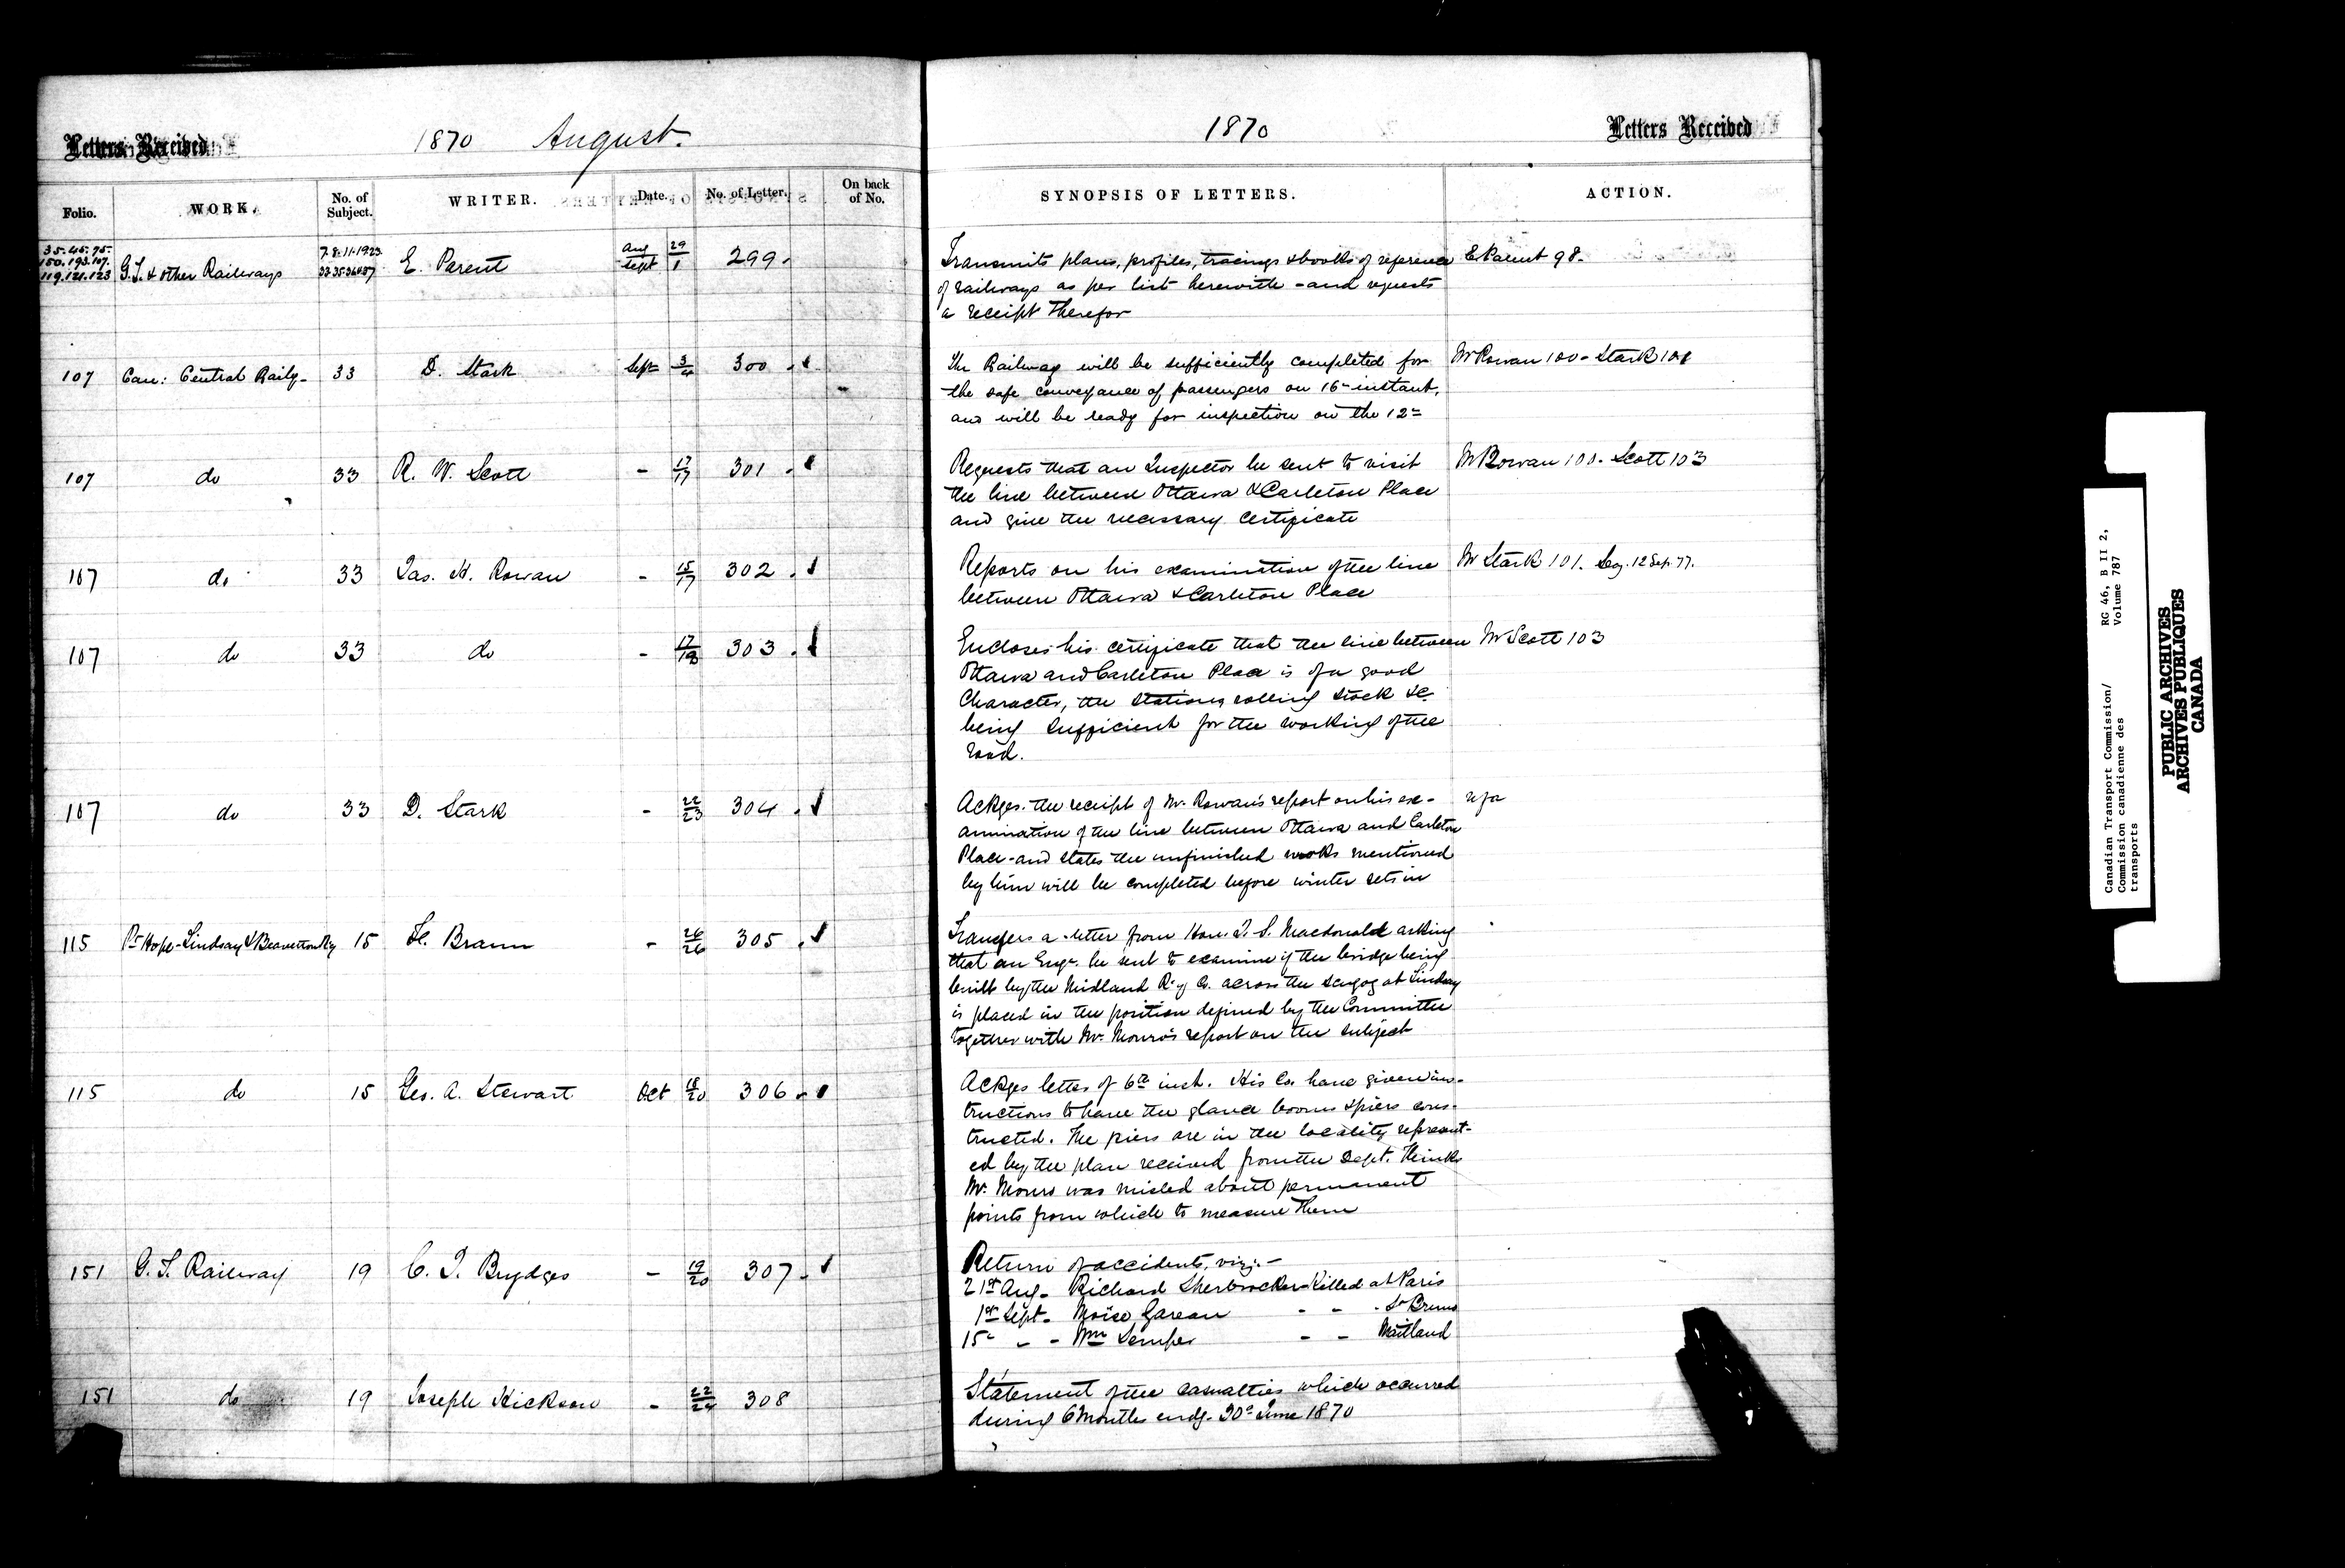 Letters Received
1870 August.
1870
Letters Received
Folio. WORK. No. of Subject. WRITER. Date. No. of Letter. On back of No.
SYNOPSIS OF LETTERS. ACTION.
35. 45. 75.
150. 193. 107.
119. 121. 123 G.T. & other Railways E. Parent Aug 29 Sept 1 299.
Transmits plans, profiles, tracings & books of reference E Parent 98.
of railways as per list herewith - and requests
a receipt therefor
107 Can: Central Raily- 33 D. Stark Sept 3/4 300
The Railway will be sufficiently completed for Mr Rowan 100 - Stark 101
the safe conveyance of passengers on 16th instant,
and will be ready for inspection on the 12th
107 do 33 R. W. Scott - 17/17 301
Requests that an Inspector be sent to visit Mr Rowan 100 - Scott 103
the line between Ottawa & Carleton Place
and give the necessary certificate
107 do 33 Jas. H. Rowan - 15/17 302
Reports on his examination of the line Mr Stark 101. 12 Sep. 77.
between Ottawa & Carleton Place
107 do 33 do - 17/18 303
Encloses his certificate that the line between Mr Scott 103
Ottawa and Carleton Place is of a good
Character, the stations, rolling stock &c
being sufficient for the working of the
road.
107 do 33 D. Stark - 22/23 304
Ackges. the receipt of Mr. Rowan's report on his ex-
amination of the line between Ottawa and Carleton
Place - and states the unfinished works mentioned
by him will be completed before winter sets in
115 Pt Hope-Lindsay & Beaverton Ry 15 F. Braun - 26/26 305
Transfers a letter from Hon. J. S. Macdonald asking
that an Engr. be sent to examine if the bridge being
built by the Midland Ry Co. across the Scugog at Lindsay
is placed in the position defined by the Committee
together with Mr. Monro's report on the subject
115 do 15 Geo. A. Stewart Oct 18/20 306
Ackges letter of 6th inst. His Co. have given ins-
tructions to have the glance booms & piers cons-
tructed. The piers are in the locality represent-
ed by the plan received from the Dept. Thinks
Mr. Monro was misled about permanent
points from which to measure them
151 G. T. Railway 19 C. J. Brydges - 19/20 307
Return of accidents, viz: -
21st Aug - Richard Sherbrocker - Killed at Paris
1st Sept - Moise Gareau - - - St Bruno
15th - - Wm Semper - - Maitland
151 do 19 Joseph Hickson - 22/24 308
Statement of the casualties which occurred
during 6 Months endg. 30th June 1870
Canadian Transport Commission/
Commission canadienne des
transports
RG 46, B II 2,
Volume 787
PUBLIC ARCHIVES
ARCHIVES PUBLIQUES
CANADA